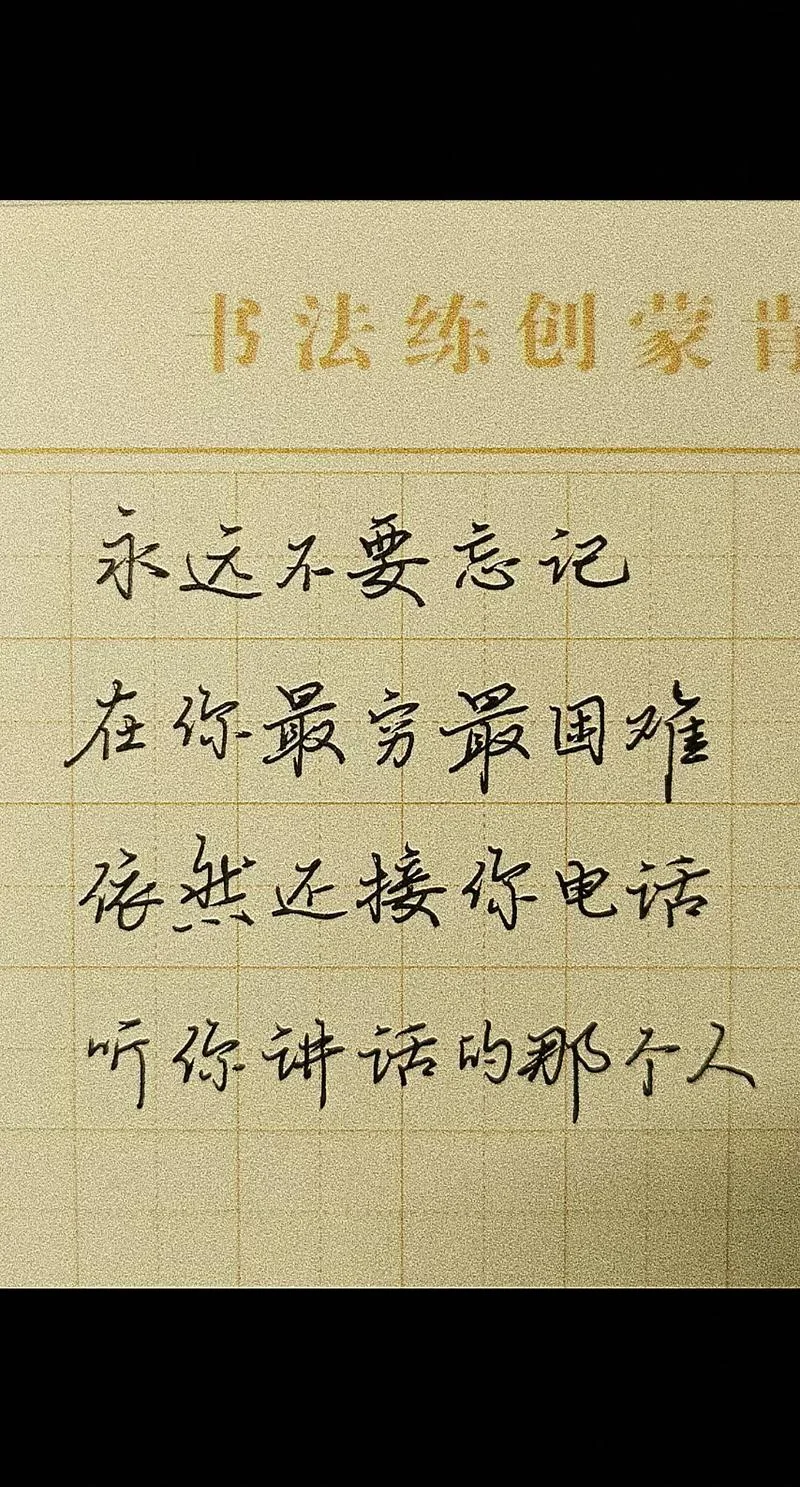 书法练创蒙肯
永远不要忘记
在你最穷最困难
依然还接你电话
听你讲话的那个人